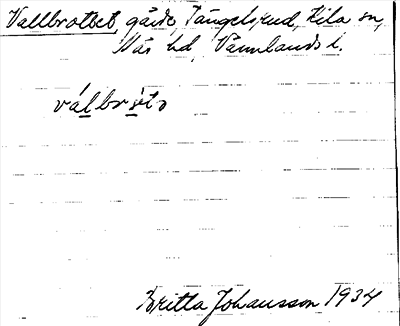 Vallbrottet, gård Tängelsrud, Kila sn,
Näs hd, Värmlands l.
válbròtə
Britta Johansson 1934